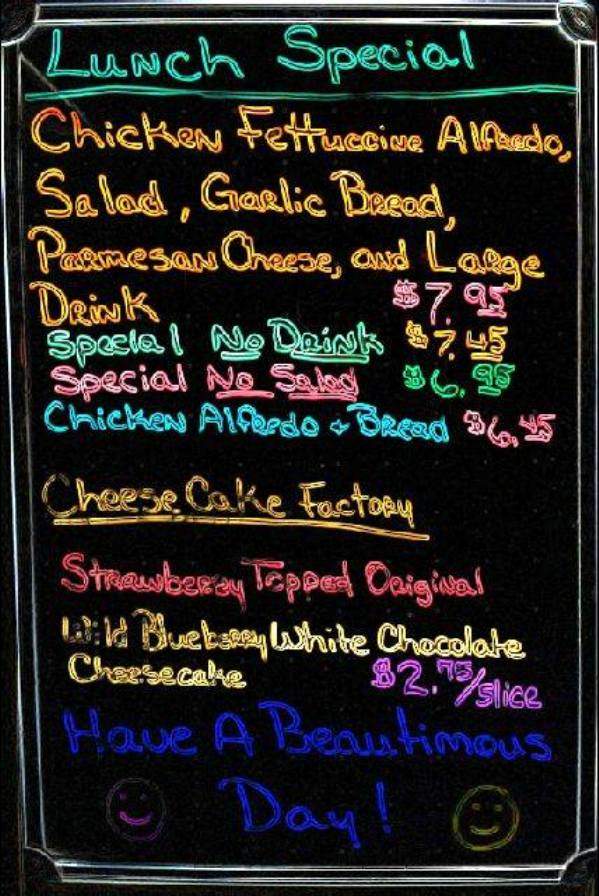 Lunch Special
Chicken Fettuccine Alfredo,
Salad, Garlic Bread,
Parmesan Cheese, and Large
Drink $7.95
Special No Drink $7.45
Special No Salad $6.95
Chicken Alfredo + Bread $6.45
Cheese Cake Factory
Strawberry Topped Original
Wild Blueberry White Chocolate
Cheesecake $2.75/slice
Have A Beautimous
Day!